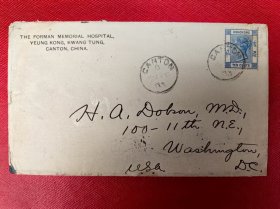 THE FORMAN MEMORIAL HOSPITAL,
YEUNG KONG, KWANG TUNG,
CANTON, CHINA.
CANTON
CANTON
H. A. Dobson, M.D.,
100-11th N.E.,
Washington,
D.C.
USA